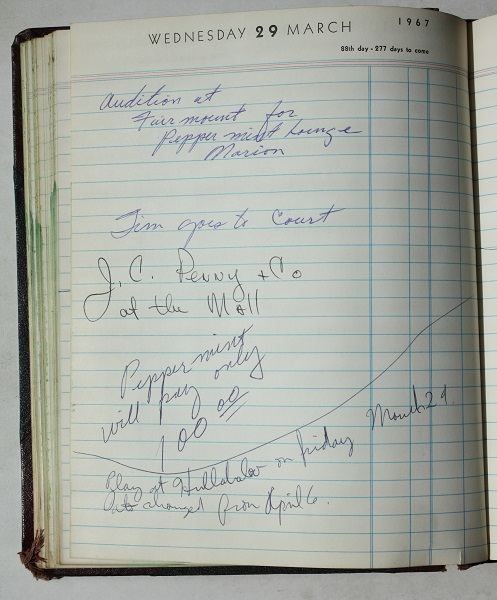 WEDNESDAY 29 MARCH 1967
88th day - 277 days to come
Audition at
Fairmount for
Pepper mint Lounge
Marion
Jim goes to Court
J. C. Penny + Co
at the Mall
Pepper mint
will pay only
100 00
March 29.
Play at Hullabaloo on friday
changed from April 6.